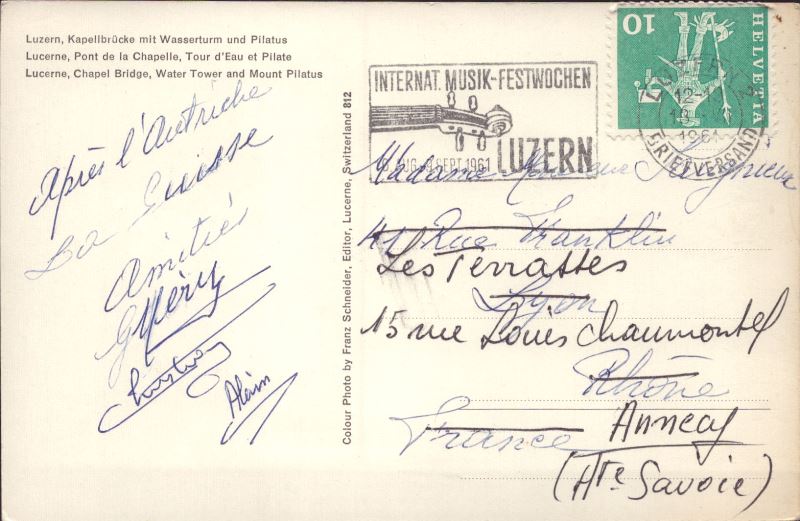 Luzern, Kapellbrücke mit Wasserturm und Pilatus
Lucerne, Pont de la Chapelle, Tour d'Eau et Pilate
Lucerne, Chapel Bridge, Water Tower and Mount Pilatus
Après l'Autriche
La Suisse
Amitiés
Alain
Colour Photo by Franz Schneider, Editor, Lucerne, Switzerland 812
INTERNAT. MUSIK-FESTWOCHEN
SEPT. 1961 LUZERN
10
HELVETIA
LUZERN 2
1961
BRIEFVERSAND
Madame
41 Rue Franklin
Les Terrasses
Lyon
15 rue Louis Chaumontel
Rhône
France
Annecy
(Hte Savoie)